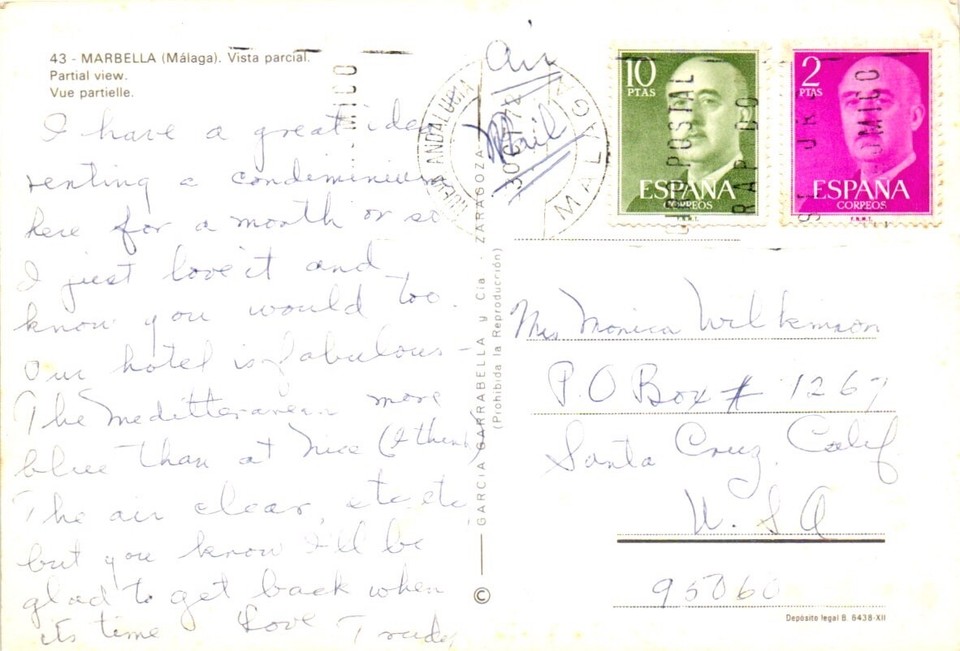 43 - MARBELLA (Málaga). Vista parcial.
Partial view.
Vue partielle.
I have a great idea
renting a condiminium
here for a month or so
I just love it and
know you would too.
Our hotel is fabulous -
The Meditteranean more
blue than at Nice (I think)
The air clear, etc etc
but you know I'll be
glad to get back when
its time Love Trudy
GARCIA GARRABELLA y Cía. - ZARAGOZA
(Prohibida la Reproducción)
©
Air
Mail
ANDALUCIA
MALAGA
10
PTAS
ESPAÑA
CORREOS
F.N.M.T.
2
PTAS
ESPAÑA
CORREOS
F.N.M.T.
POSTAL
Mrs Monica Wilkinson
P.O Box # 1267
Santa Cruz, Calif
U.S A
95060
Depósito legal B. 6438-XII